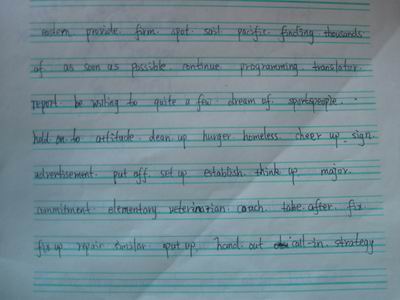 modern provide. firm. spot. soil pacific. finding thousands
of. as soon as possible continue. programming. translator.
report be willing to quite a few. dream of. sportspeople.
hold on to attitude. clean up hunger homeless. cheer up. sign.
advertisement. put off. set up establish. think up. major.
commitment elementary veterinarian. coach. take after. fix.
fix up repair similar. put up. hand out call-in. strategy